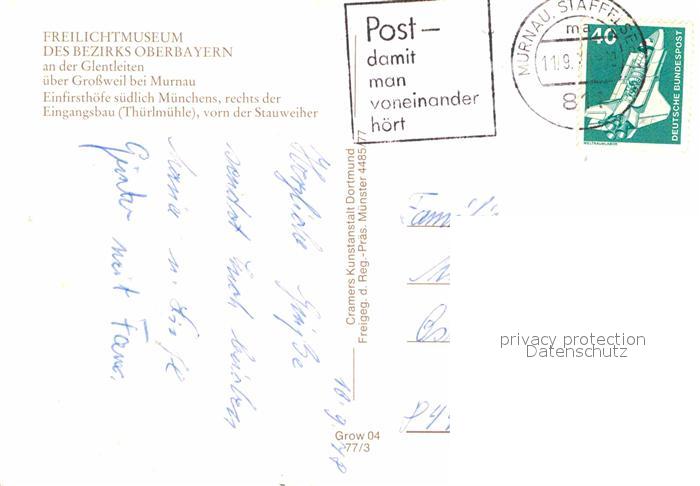 FREILICHTMUSEUM
DES BEZIRKS OBERBAYERN
an der Glentleiten
über Großweil bei Murnau
Einfirsthöfe südlich Münchens, rechts der
Eingangsbau (Thürlmühle), vorn der Stauweiher
Post—
damit
man
voneinander
hört
MURNAU, STAFFELSEE
11.9.
40
DEUTSCHE BUNDESPOST
WELTRAUMLABOR
Cramers Kunstanstalt Dortmund
Freigeg. d. Reg.-Präs. Münster 4485/77
Grow 04
77/3
10.9.78
Herzliche Grüße
sendet Euch
Maria u.
Günter mit Fam.
Fam
privacy protection
Datenschutz